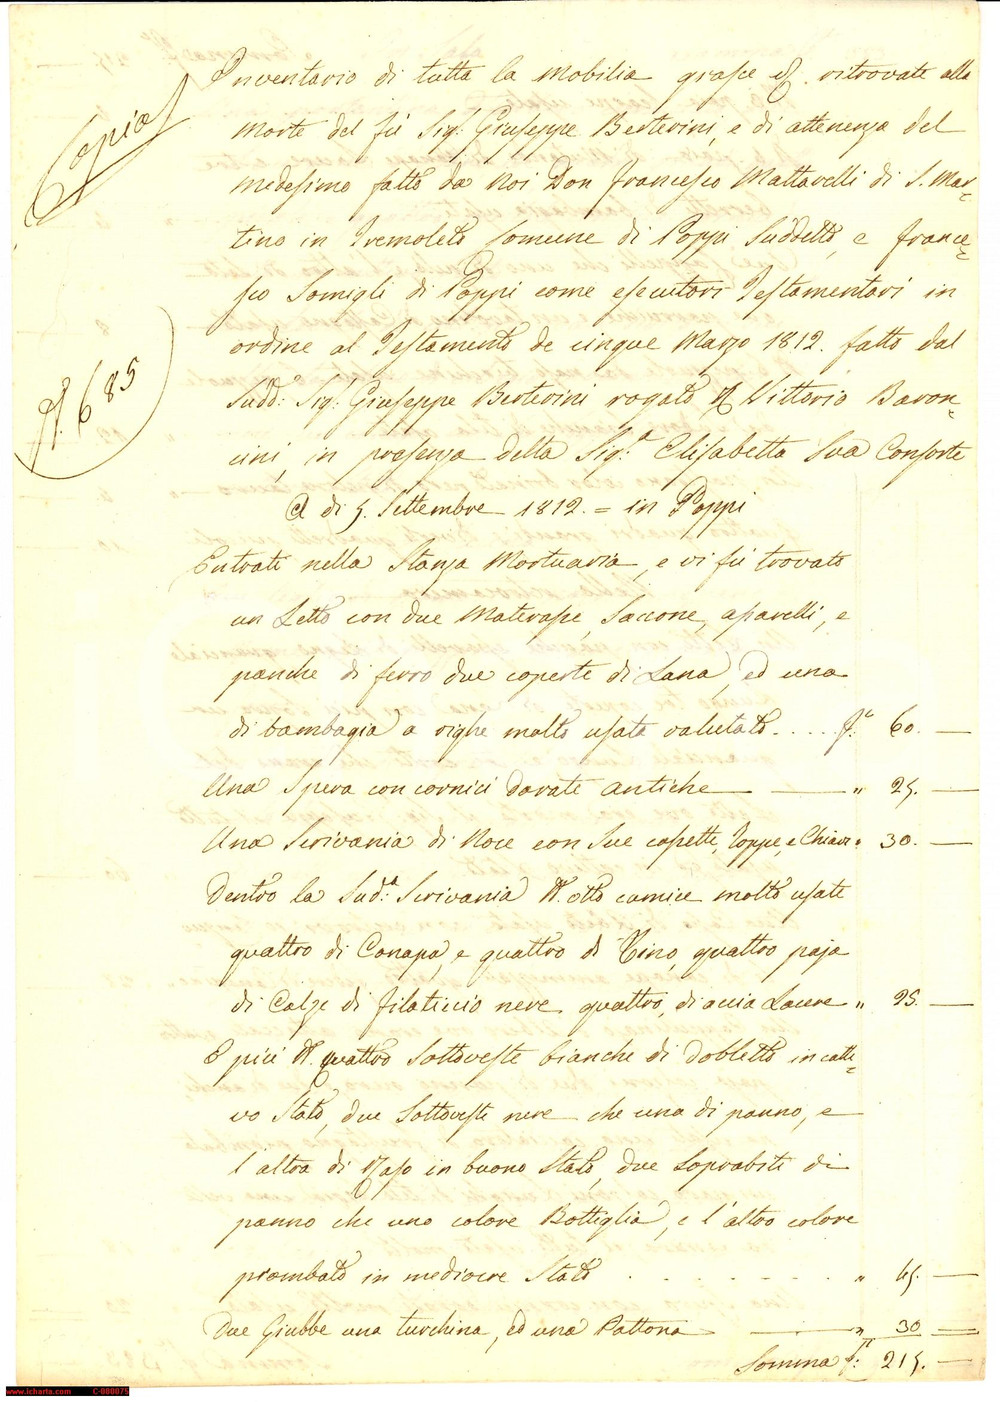 Copia
N. 685
Inventario di tutta la Mobilia grasce &. ritrovate alla
Morte del fù Sig.r Giuseppe Berterini, e di attenenza del
Medesimo fatto da Noi Don Francesco Mattarelli di S. Mar=
tino in Tremoleto Comune di Poppi Suddetto, e France=
sco Somigli di Poppi come esecutori Testamentari in
ordine al Testamento de cinque Marzo 1812. fatto dal
Sudd.o Sig.r Giuseppe Berterini rogato Vittorio Baron=
cini, in presenza della Sig.a Elisabetta Sua Consorte
A di 5. Settembre 1812. = in Poppi
Entrati nella Stanza Mortuaria, e vi fù trovato
un Letto con due Materasse, Saccone, asparelli, e
panche di ferro due coperte di Lana, ed una
di bambagia a righe molto usata valutato.... f.i 60. —
Una Spera con cornici dorate antiche — " 25. —
Una Scrivania di Noce con Sue casette, Toppe, e Chiavi " 30. —
Dentro la Sud.a Scrivania N. otto camice molto usate
quattro di Canapa, e quattro di Lino, quattro paja
di Calze di filaticcio nere quattro, di accia Lacere " 25. —
E più N. quattro Sottoveste bianche di dobletto in catti=
vo Stato, due Sottoveste nere che una di panno, e
l'altra di Raso in buono Stato, due Soprabiti di
panno che uno colore Bottiglia, e l'altro colore
piombato in mediocre Stato . . . . . . . " 45. —
Due Giubbe una turchina, ed una Pattona — " 30 =
Somma f.i 215. —
www.lcharta.com C-080075